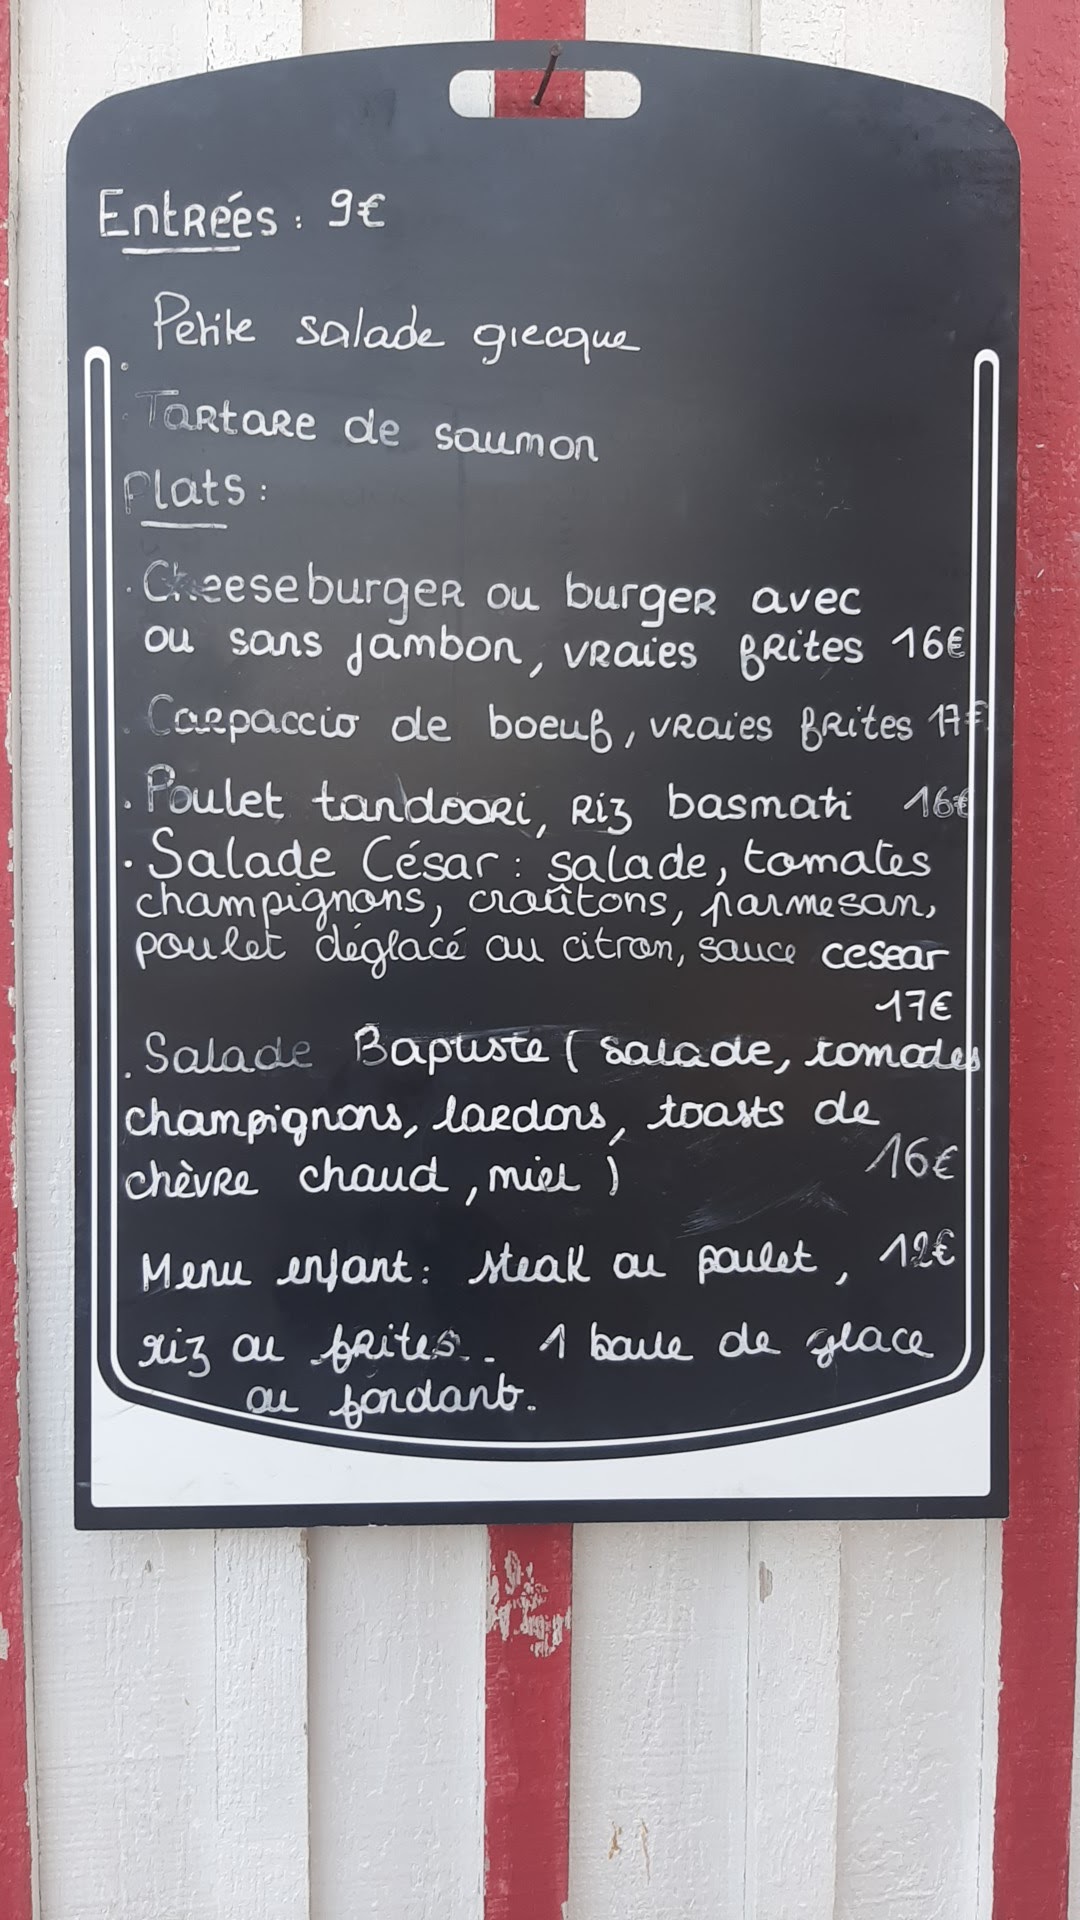 Entrées : 9€
Petite salade grecque
. Tartare de saumon
Plats :
. Cheeseburger ou burger avec
ou sans jambon, vraies frites 16€
. Carpaccio de boeuf, vraies frites 17€
. Poulet tandoori, riz basmati 16€
. Salade César : salade, tomates
champignons, croûtons, parmesan,
poulet déglacé au citron, sauce cesear
17€
. Salade Baptiste ( salade, tomades
champignons, lardons, toasts de
chèvre chaud, miel ) 16€
Menu enfant : steak ou poulet, 12€
riz ou frites.. 1 boule de glace
ou fondant.